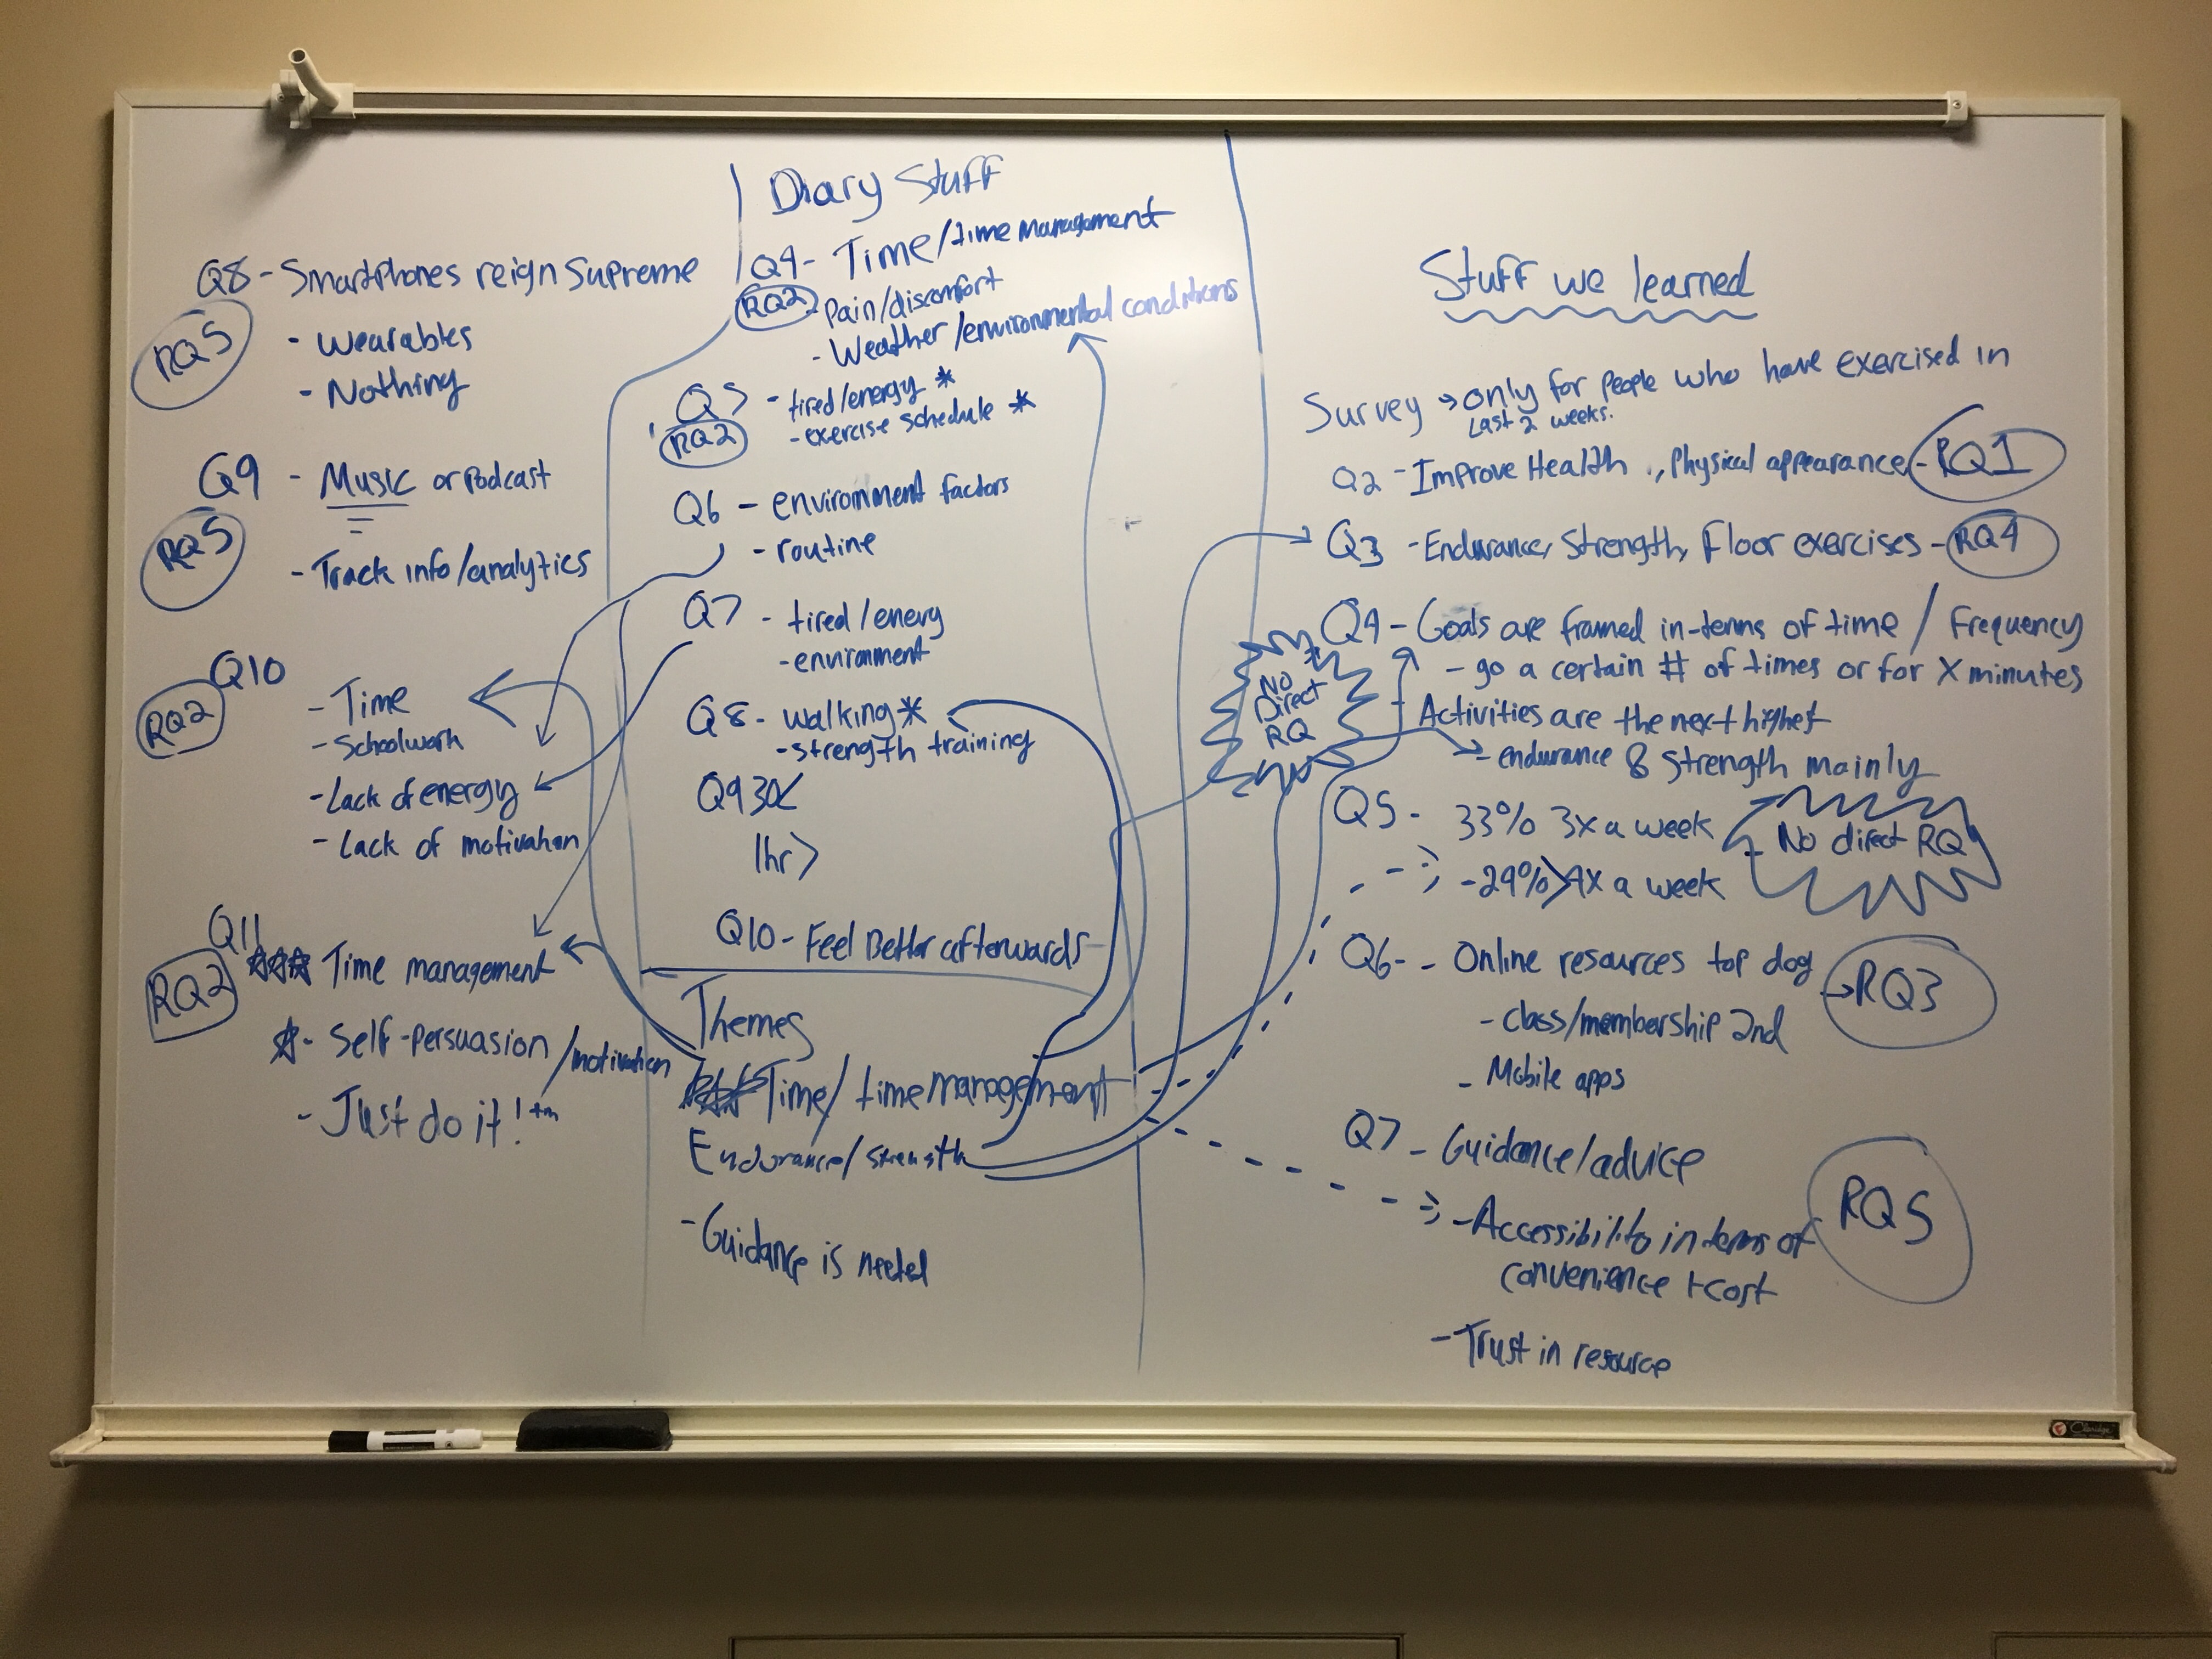 Q8 - Smartphones reign supreme
RQ5
- Wearables
- Nothing
Q9 - Music or podcast
RQ5
- Track info/analytics
Q10
RQ2
- Time
- Schoolwork
- Lack of energy
- Lack of motivation
Q11
RQ2
Time management
- Self-persuasion/motivation
- Just do it! tm
Diary Stuff
Q4 - Time/time management
RQ2
- Pain/discomfort
- Weather/environmental conditions
Q5 - tired/energy *
RQ2
- exercise schedule *
Q6 - environment factors
- routine
Q7 - tired/enery
- environment
Q8 - walking *
- strength training
Q9 30<
1hr >
Q10 - Feel Better afterwards
Themes
Time/ time management
Endurance/strength
- Guidance is needed
Stuff we learned
Survey → only for people who have exercised in
Last 2 weeks.
Q2 - Improve Health , Physical appearance - RQ1
Q3 - Endurance, Strength, Floor exercises - RQ4
Q4 - Goals are framed in-terms of time / Frequency
- go a certain # of times or for X minutes
- Activities are the next highest
→ endurance & strength mainly
No
Direct
RQ
Q5 - 33% 3x a week
- No direct RQ
- 29% >4x a week
Q6 - - Online resources top dog → RQ3
- Class/membership 2nd
- Mobile apps
Q7 - Guidance/advice
RQ5
- Accessibility in terms of
convenience + cost
- Trust in resource